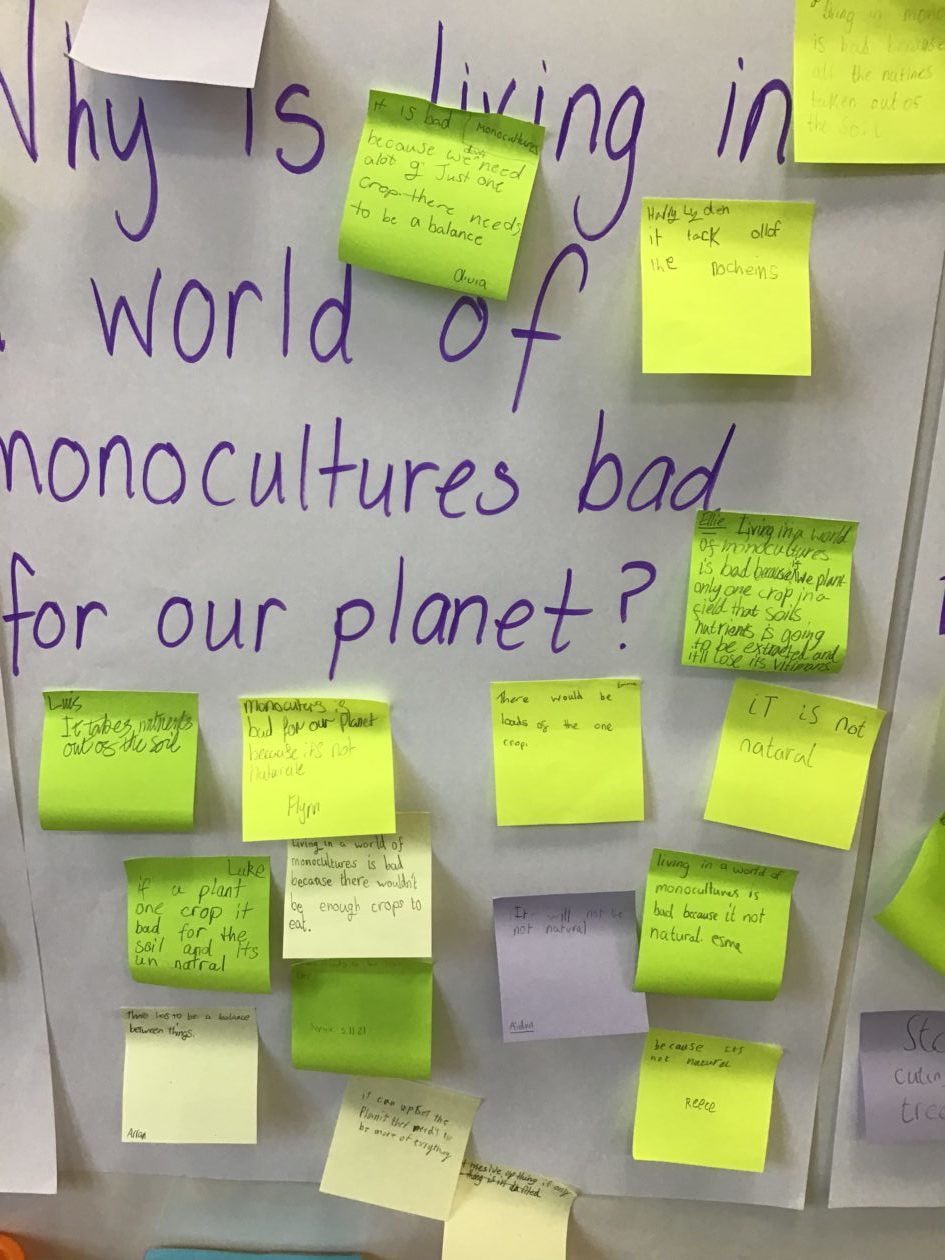 Why is living in
world of
monocultures bad
for our planet?
living in mono
is bad because
all the
taken out of
the soil
It is bad (monocultures)
because we don't need
alot of Just one
crop there needs
to be a balance
Olivia
it tack ollof
the
Ellie Living in a world
of monocultures
is bad because if we plant
only one crop in a
field that soils
nutrients is going
to be extracted and
it'll lose its
It takes
out of the soil
bad for our planet
because its not
Naturale
Flynn
There would be
loads of the one
crop.
iT is not
natural
Luke
if a plant
one crop it
bad for the
soil and its
un natral
Living in a world of
monocultures is bad
because there wouldn't
be enough crops to
eat.
It will not be
not natural
Aidan
living in a world of
monocultures is
bad because it not
natural esme
There has to be a balance
between things.
because its
not natural
REECE
it can upset the
be more of
Sto
cutin
tree